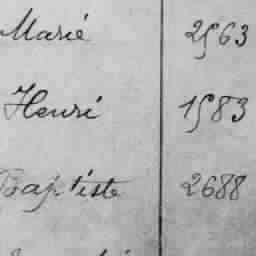 Marié 2563
Henri 1583
Baptiste 2688